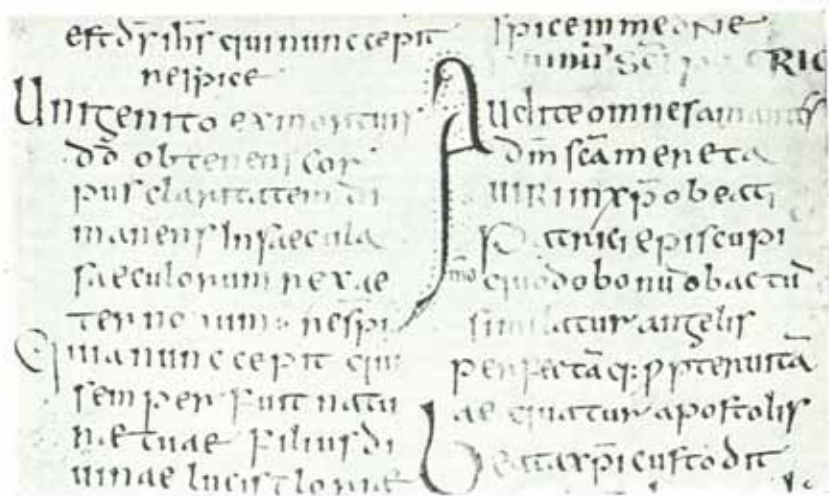 est dr̄ ihr̄ qui nunc cepit
respice
Unigenito ex mortuis
dō obtenens cor
pus claritatem di
manens in saecula
saeculorum rex ae
ternorum respi
Quia nunc cepit qui
semper fuit natu
rae tuae filius di
uinae lucis gloriae
spice in me dñe
sc̄i RIC
Audite omnes amantes
dm̄ scā mereta
uiri in xp̄o beati
Patrici episcupi
quodo bonū ob actū
mo
similatur angelis
perfectāq: propter uitā
aequatur apostolis
Beata xp̄i custodit